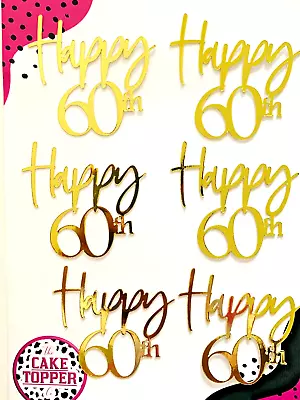 Happy Happy
60th 60th
Happy Happy
60th 60th
Happy Happy
60th 60th
The
CAKE
TOPPER